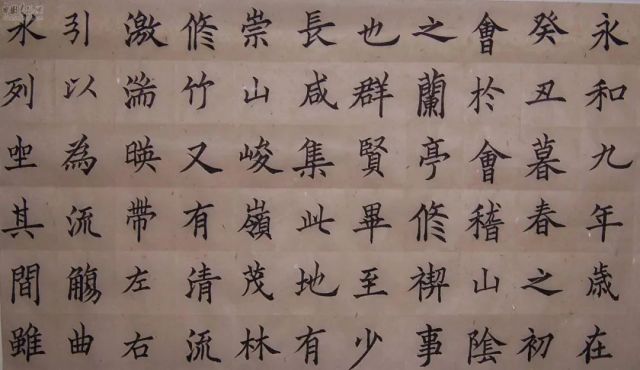 永和九年歲在
癸丑暮春之初
會於會稽山陰
之蘭亭修禊事
也群賢畢至少
長咸集此地有
崇山峻嶺茂林
修竹又有清流
激湍暎帶左右
引以為流觴曲
水列坐其間雖